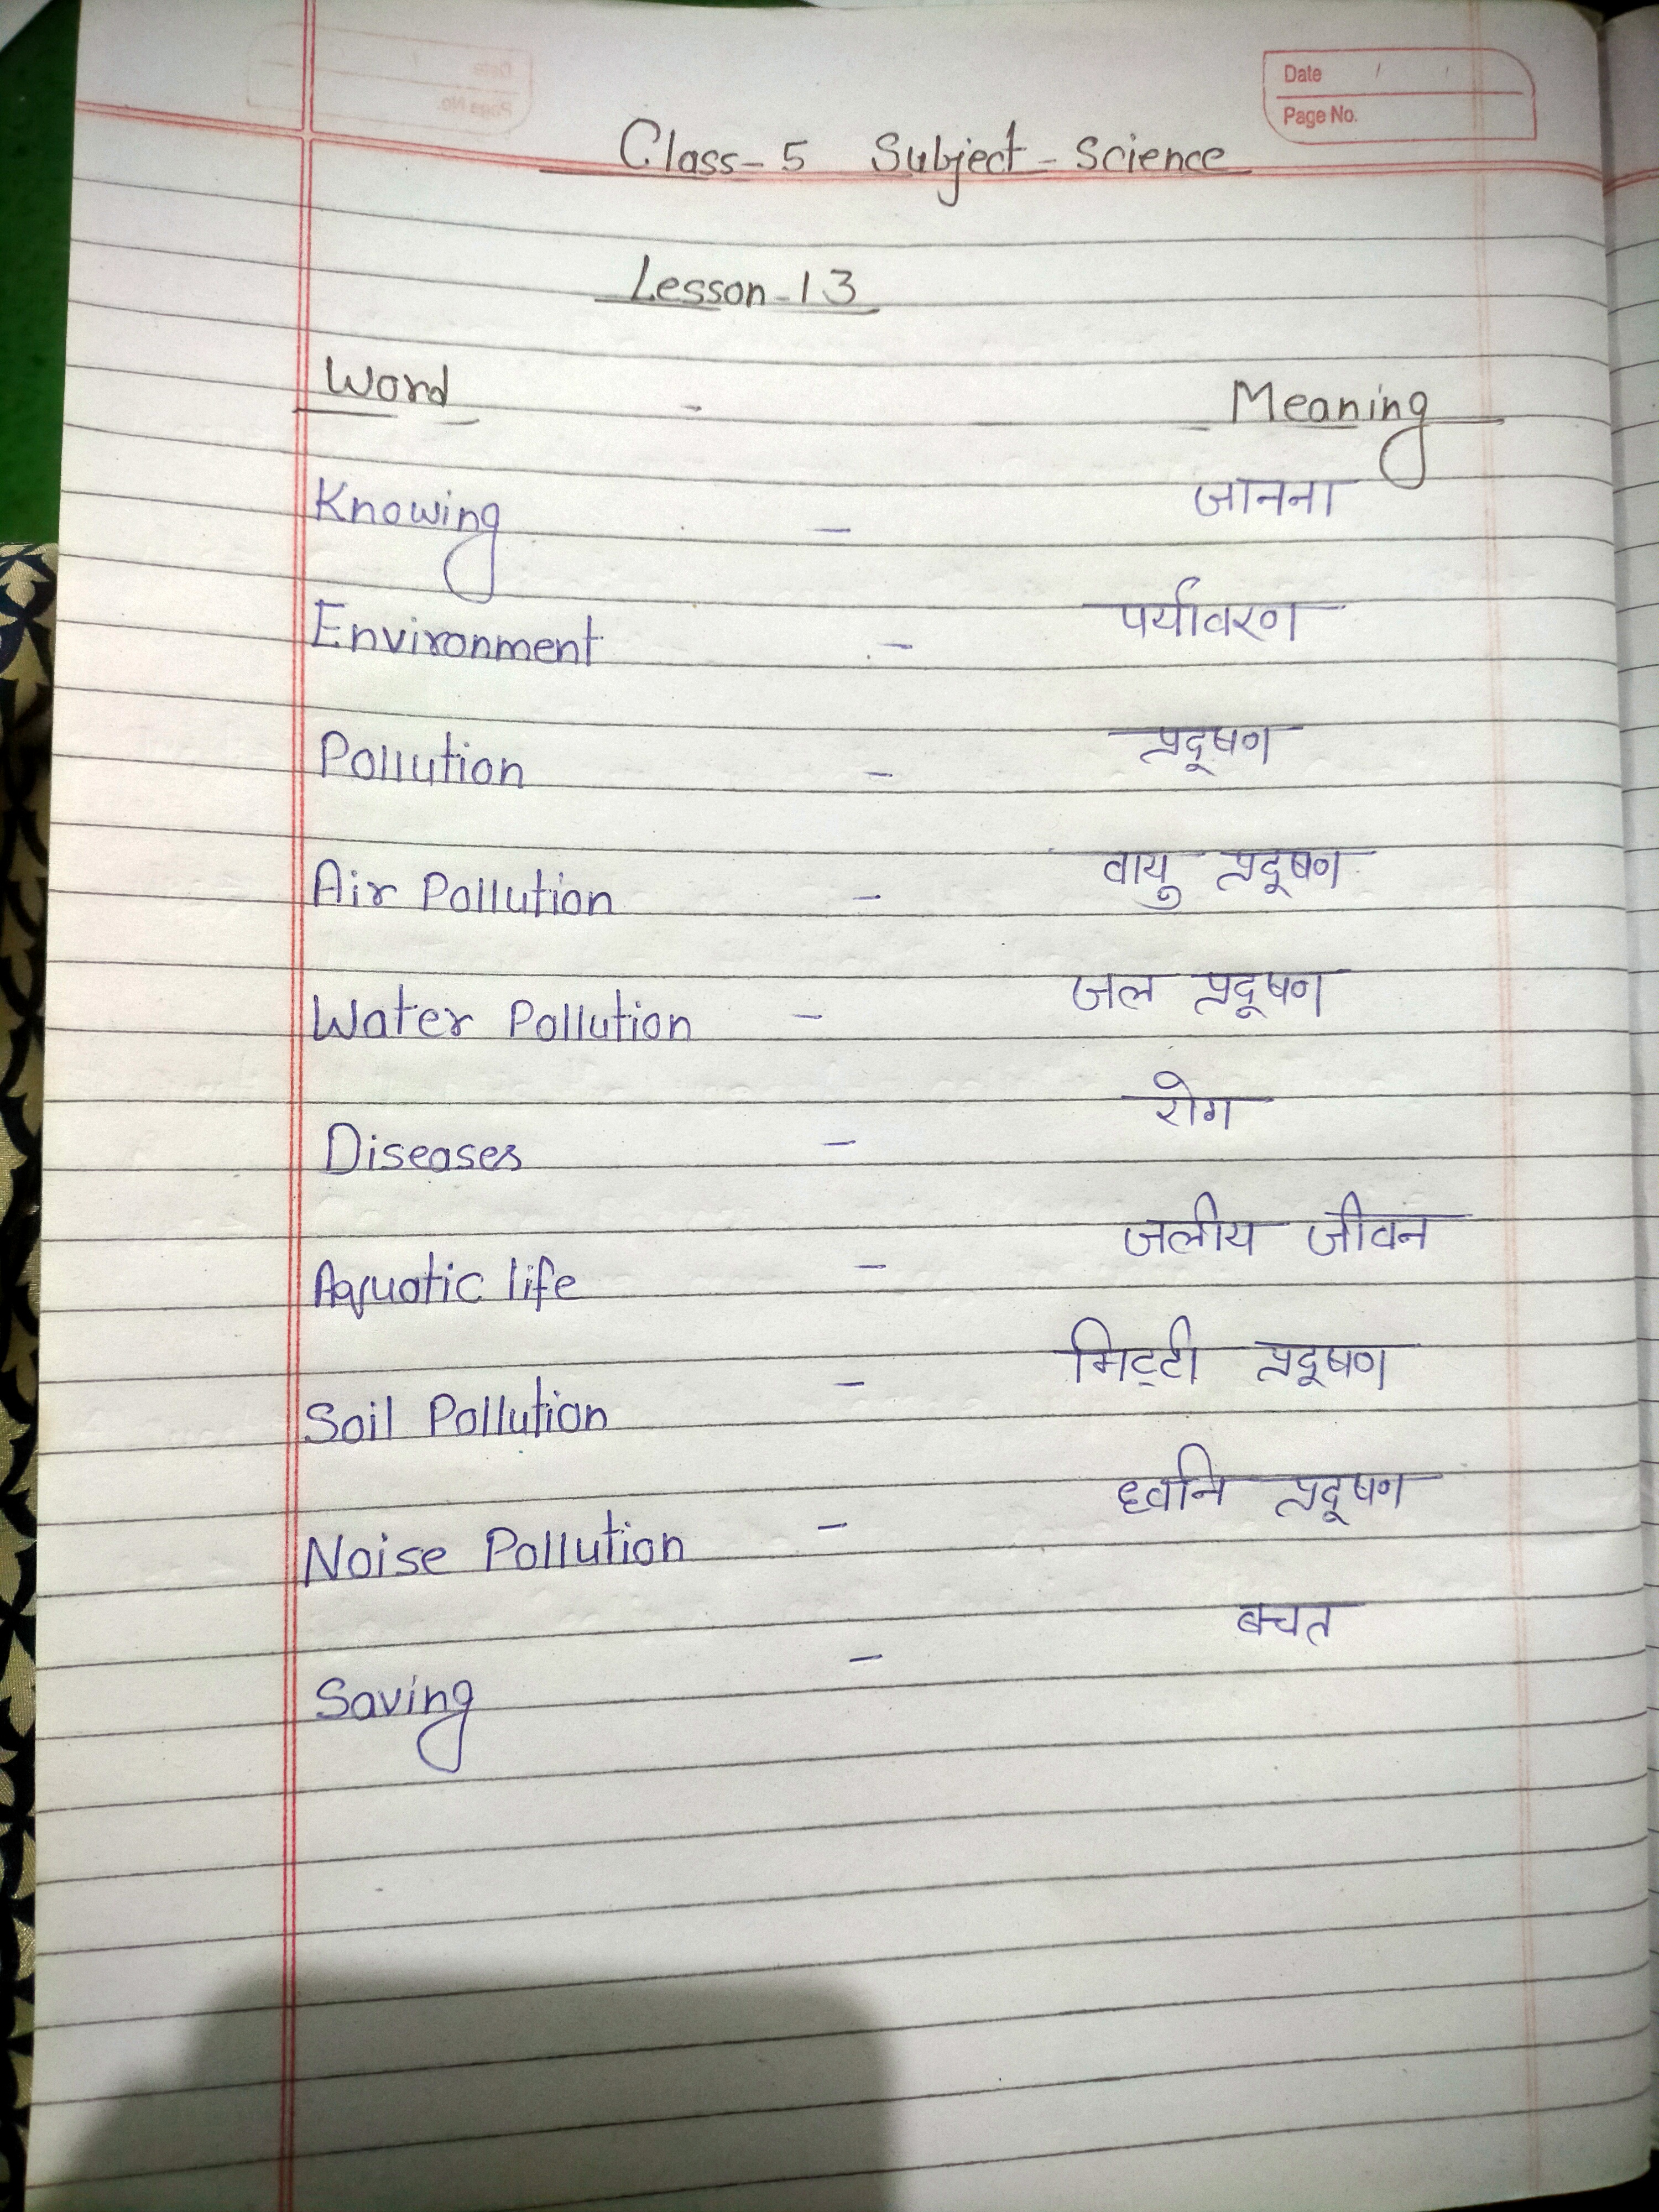 Date / /
Page No.
Class-5 Subject-Science
Lesson-13
Word - Meaning
Knowing - जानना
Environment - पर्यावरण
Pollution - प्रदूषण
Air Pollution - वायु प्रदूषण
Water Pollution - जल प्रदूषण
Diseases - रोग
Aquatic life - जलीय जीवन
Soil Pollution - मिट्टी प्रदूषण
Noise Pollution - ध्वनि प्रदूषण
Saving - बचत